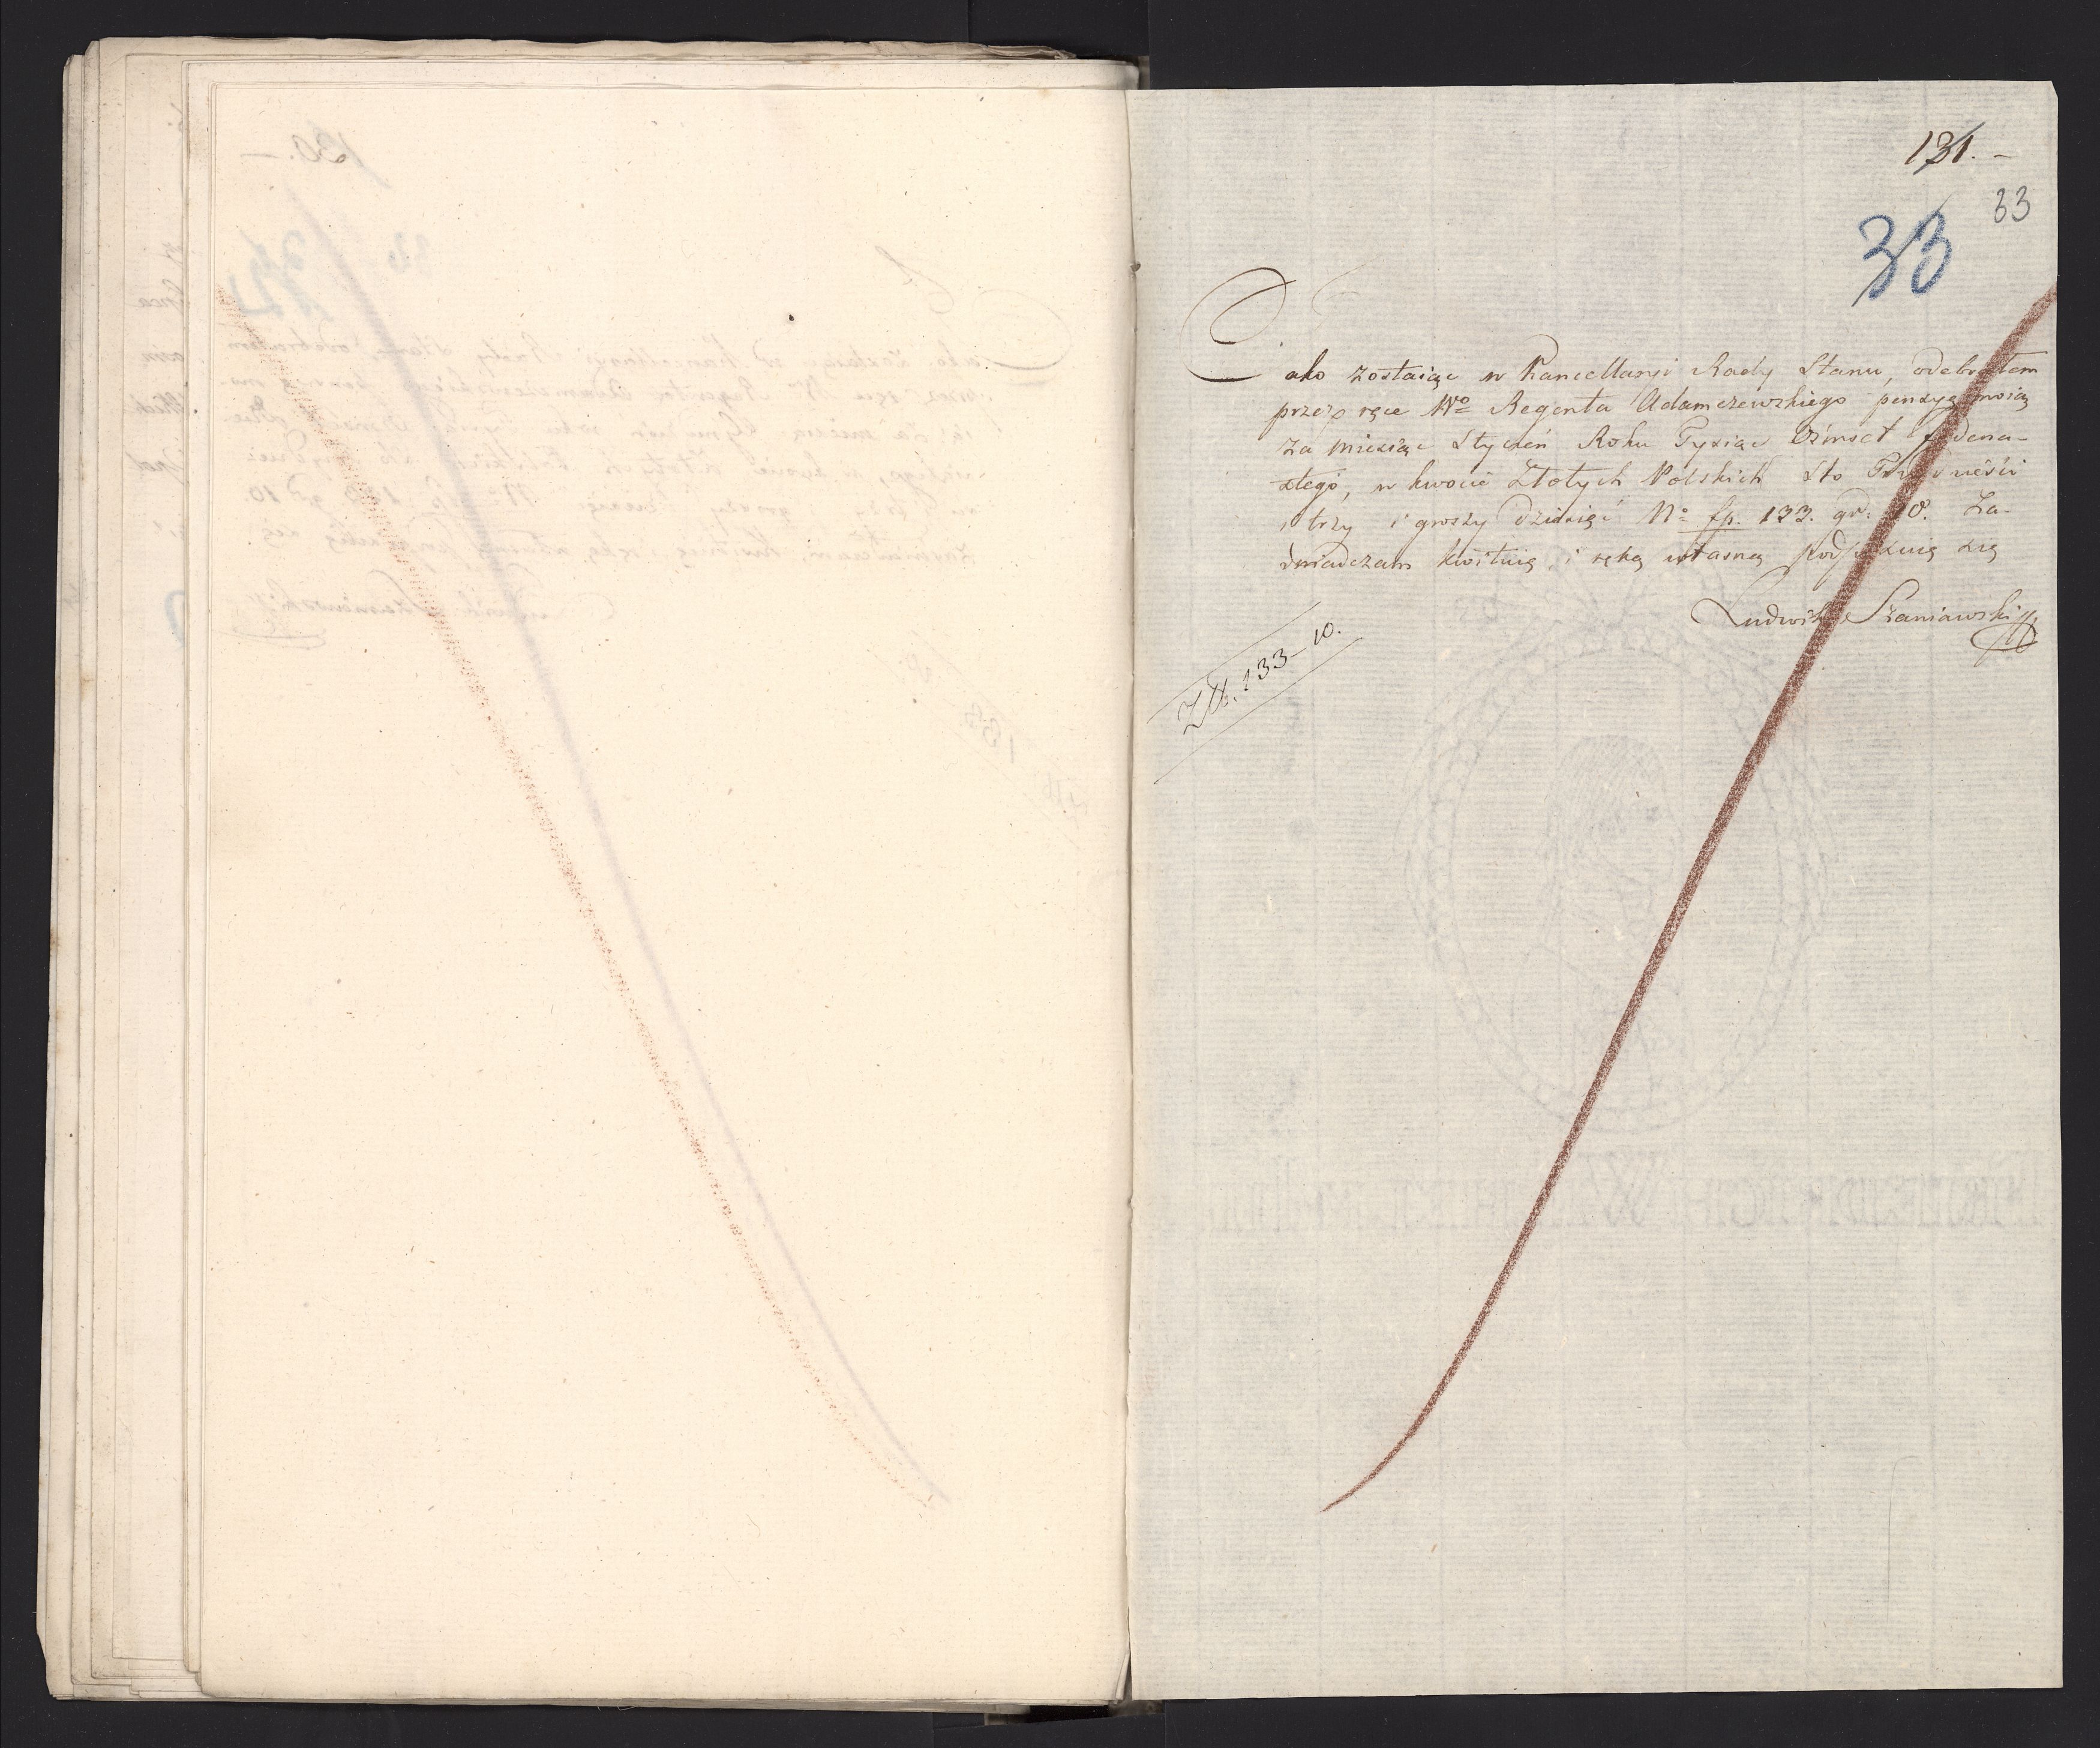 131. –
33
33
Jako zostaiąc w Kancellaryi Rady Stanu, odebrałem
przez ręce Wº Regenta Adamczewskiego pensyą moią
za miesiąc Styczeń Roku Tysiąc Ośmset Jedena-
stego, w kwocie Złotych Polskich Sto Trzydzieści
i trzy i groszy dziesięć Nº fp. 133. gr: 10. Za-
świadczam kwituię i ręką własną podpisuię się
Ludwik Szaniawski
Złł. 133 – 10.